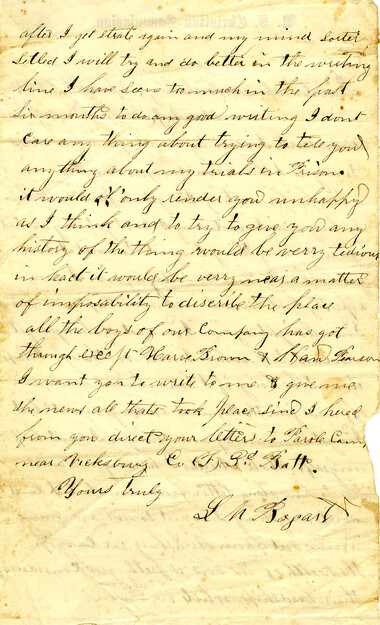 after I get strate again and my mind sorter
setled I will try and do better in the writing
line I have seen too much in the first
six months to do any good writing I dont
care any thing about trying to tell you
anything about my trials in Prison
it would only render you unhappy
as I think and to try to give you any
history of the thing would be verry tedious
in fact it would be verry near a matter
of imposability to discribe the place
all the boys of our Company has got
through except Harve Brown & Ham Pearson
I want you to write to me & give me
the news all thats took place sind I hered
from you direct your letters to Parole Camp
near Vicksburg Co (F) 3d Batt.
Yours truly
S M Bogart